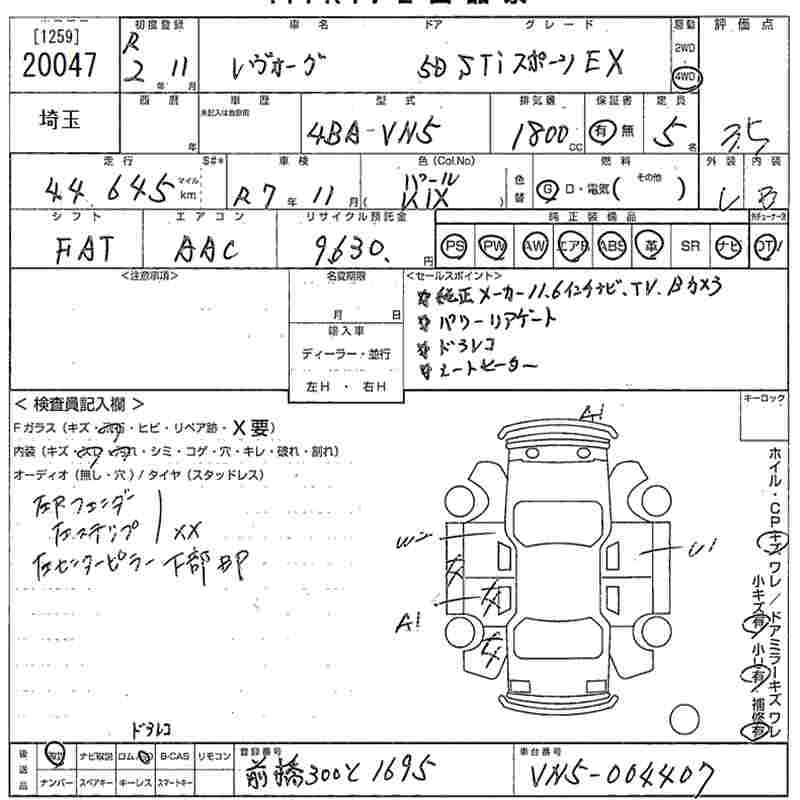 [1259]
20047
初度登録
R 2年 11月
車名
レヴォーグ
ドア
グレード
5D STiスポーツ EX
駆動
2WD
4WD
評価点
3.5
埼玉
西暦
年
車歴
未記入は自家用
型式
4BA-VN5
排気量
1800 CC
保証書
有 無
定員
5 名
走行
44 645 マイル km
S#*
車検
R7年 11月
色(Col.No)
パール
K1X
色替
燃料
G D・電気( その他 )
外装
内装
B
シフト
FAT
エアコン
AAC
リサイクル預託金
9,630. 円
純正装備品
PS PW AW エアB ABS 革 SR ナビ TV
<注意事項>
名変期限
月 日
輸入車
ディーラー・並行
左H ・ 右H
<セールスポイント>
純正メーカー11.6インチナビ、TV、Bカメラ
パワーリアゲート
ドラレコ
シートヒーター
キーロック
< 検査員記入欄 >
Fガラス(キズ・ ・ヒビ・リペア跡・X要)
内装(キズ・ ・シミ・コゲ・穴・キレ・破れ・割れ)
オーディオ(無し・穴)/タイヤ(スタッドレス)
左Rフェンダー
左ステップ XX
左センターピラー下部
A1
U1
A1
ホイル・CPキズ ワレ/ドアミラーキズ ワレ
小キズ有 小凹有 補修有
ドラレコ
後送品
ナビ取説 B-CAS リモコン
ナンバー スペアキー キーレス スマートキー
登録番号
前橋300と1695
車台番号
VN5-004407